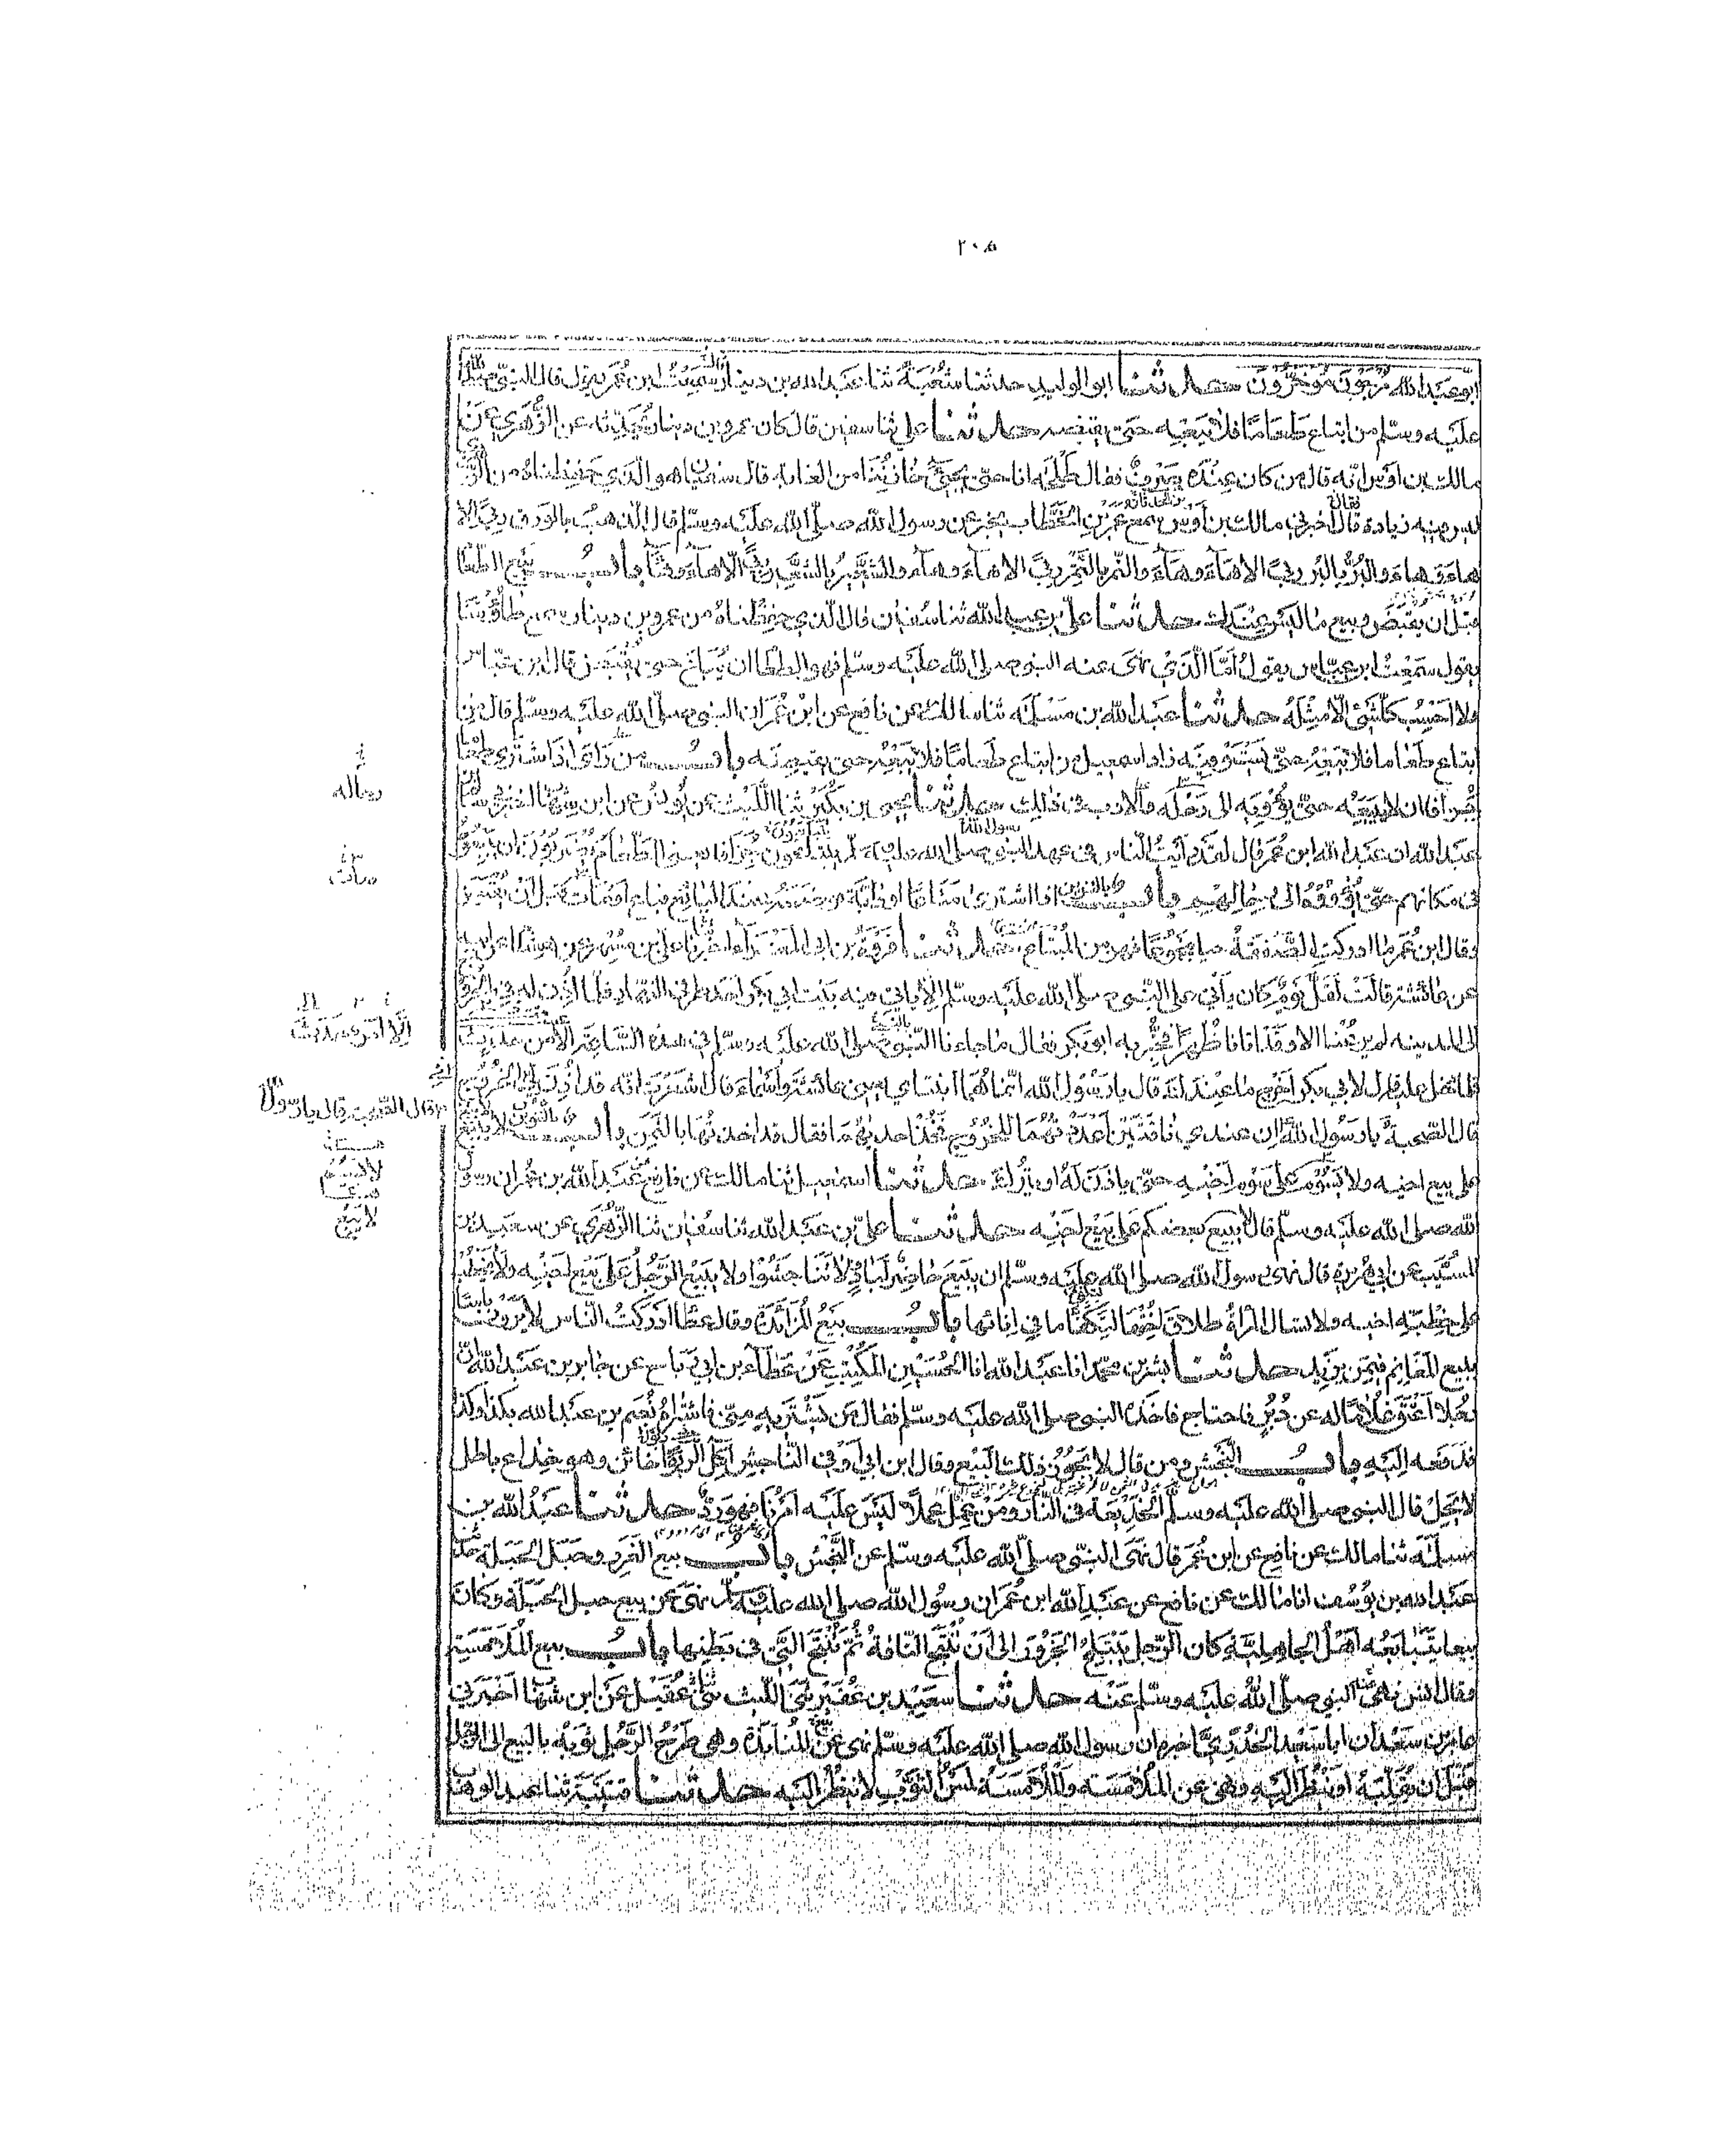 ٢٠٥
ابو عبد الله مُرْجَوْنَ مُؤَخَّرُونَ حدثنا ابو الوليد حدثنا شُعْبَةُ ثنا عبد الله بن دينار سَمِعْتُ ابن عُمَر يقول قال النبيّ صلى الله
عليه وسلم من ابتاع طَعَامًا فلا يَبِعْهِ حتى يقبضه حدثنا علي ثنا سفين قال كان عمرو بن دينار يُحَدِّثه عن الزُّهري عن
مالك بن اوس انّه قال من كان عِنْدَه صَرْفٌ فقال طَلْحَة انا حتى يجئ خازنُنَا من الغابة قال سفيان هو الذي حَفِظناه من الزُّهري
ليس فيه زيادة قال اخبرني مالك بن أوس سمع عمر بن الخَطَّاب يخبر عن رسول الله صلى الله عليه وسلم قال الذهبُ بالورق رِبًا الا
هاءَ وهاءَ والبُرُّ بالبُر رِبًا الا هاءَ وهاءَ والتّمر بالتَّمْر ربًا الا هاءَ وهاءَ والشّعِيرُ بالشّعِير رِبًا الّا هاءَ وهاءَ بابُ بَيْع الطعا
قبل ان يقبَضَ وبيع ما ليس عِنْدَك حدثنا عليّ بن عبد الله ثنا سُفيان قال الّذي حَفِظْناهُ من عمرو بن دينار سمع طاوُسًا
يقول سَمِعْتُ ابن عبّاس يقولُ امَّا الّذي نهى عنه النبي صلى الله عليه وسلم فهو الطعام ان يُبَاعَ حتى يُقْبَضَ قال ابن عبّاس
ولا احْسِبُ كلَّ شئ الّا مِثْلَهُ حدثنا عبد الله بن مَسْلمَة ثنا مالك عن نافع عن ابن عُمَر ان النبي صلى الله عليه وسلم قال من
ابتاع طعاما فلا يَبِعْهُ حتى يَسْتَوْفِيَه زاد اسمعيل من ابتاع طَعامًا فلا يَبِعْهُ حتى يقبضه بابُ من رَأى اذا اشترى طعاما
جُزافا ان لا يَبِيعَه حتى يؤويه الى رَحْلِه والادب في ذلك حدثنا يحيى بن بُكَيْر ثنا اللَّيْث عن يُونُس عن ابن شِهاب اخبرني سالم
عبد الله ان عبد الله ابن عُمَر قال لقد رَأيْتُ الناس في عهد النبي صلى الله عليه وسلم يبتاعون جُزَافا يعني الطّعامَ يُضْرَبُوْنَ ان يبيعُوْ
في مكانهم حتى يُؤْوُوْهُ الى رِحَالِهِم بابُ اذا اشترى مَتَاعًا او دابَّة فوضَعَه عندَ البائِع فباع او مَات قَبْلَ انْ يُقْبَضَ
وقال ابن عُمَر ما ادركت الصَّفقَةُ حيا مَجْمُوعًا فهو من المُبْتَاع حدثنا فَرْوَةُ بن ابي المَغْرَاء اخبرنا علي بن مُسْهِر عن هشام عن ابيه
عن عائشة قالَتْ لَقَلَّ يَوْمٌ كان يأتي على النبي صلى الله عليه وسلم الا ياتي فيه بيت ابي بكر احد طرفي النهار فلما اُذِن له في الخُرُوْج
الى المدينه لم يَرُعْنا الا وقد اتانا ظُهرًا فخُبِّر به ابو بَكر فقال ما جاءنا النّبيُّ صلى الله عليه وسلم في هذه السَّاعَةِ الّا من حَدَثٍ
فلما دخل عليه قال لابي بكر اَخرِج ما عِنْدَك قال يا رَسُوْل الله انّما هُمَا ابنتاي يعني عائشة واَسْماءَ قال اَشَعَرْتَ انّه قد اُذِنَ لي في الخُرُوْج
قال الصّحبةَ يا رَسُول الله ان عندي ناقَتَيْن اَعْدَدْتُهُمَا للخُرُوْجِ فخُذْ احديهُمَا فقال قد اخذتُها بالثمن باب لا يبيع
على بيع اخيه ولا يَسُوْمُ على سَوْمِ اَخِيْه حتّى ياذَنَ لَهُ او يَتْرُكَ حدثنا اسمعيل ثنا مالك عن نافع عن عبد الله بن عُمَر ان رسول
الله صلى الله عليه وسلم قال لا يبيع بعضكم على بَيْع اَخِيْه حدثنا عليّ بن عبد الله ثنا سُفيان ثنا الزُّهْرِي عن سعيد بن
المسَيَّب عن ابي هُرَيرة قال نهى رسول الله صلى الله عليه وسلم ان يبيعَ حَاضِرٌ لبَادٍ ولا تَنَاجَشُوْا ولا يبيعُ الرَّجُلُ على بَيْع اَخِيْه ولا يَخْطُبُ
على خِطْبَةِ اخيه ولا تسأل المَرْأةُ طلاقَ اُخْتِهَا لِتَكْفَأَ ما في اِنائها بابُ بيعُ المُزَايَدَة وقال عطاءٌ اَدْرَكتُ النّاس لا يَرَوْنَ باسًا
ببيع المَغَانِم فيمن يَزِيد حدثنا بشر بن محمد انا عبد الله انا الحُسَيْن المُكْتِبُ عن عَطآء بن ابي رَباح عن جابر بن عبد الله انّ
رَجُلا اَعْتَقَ غُلامًا له عن دُبُرٍ فاحتاج فاخَذَهُ النبي صلى الله عليه وسلم فقال من يَشْتَرِيه مِنّي فاشتراهُ نُعَيم بن عبد الله بكذا وكذا
فدَفعه اليه بابُ النَّجْش ومن قال لا يجوزُ ذلك البَيْع وقال ابن ابي اَوْفى النّاجِش آكِلُ الرِّبَوا خائن وهو خِداع باطل
لا يَحِلُّ قال النبي صلى الله عليه وسلم الخَدِيعَة في النّار ومَنْ عَمِل عملًا لَيْسَ عَلَيْه اَمْرُنا فهو رَدٌّ حدثنا عبدُ الله بن
مَسْلمَة ثنا مالك عن نافع عن ابن عُمَر قال نَهَى النبي صلى الله عليه وسلم عن النَّجْش بابُ بيع الغَرَر وحَبَل الحَبَلة حدثنا
عبد الله بن يُوسُف انا مَالك عن نافع عن عبدِ الله ابن عُمَر ان رسُول الله صلى الله عليه وسلم نهى عن بيع حبل الحَبَلَة وكان
بيعا يَتَبَايَعُه اَهْلُ الجاهِلِيَّة كان الرّجل يَبْتَاعُ الجَزُوْرَ الى اَنْ تُنْتَجَ النّاقةُ ثُمّ تُنْتَجُ الّتي في بَطنِها بابُ بيع المُلامَسَةِ
وقال انس نهى النبي صلى الله عليه وسلم عَنْه حدثنا سعيد بن عُفَيْر ثني اللّيث ثني عُقَيْل عن ابن شهاب اخبرني
عامر بن سَعْد ان ابا سَعِيد الخُدْرِيّ اخبره ان رسول الله صلى الله عليه وسلم نهى عن المُنَابَذَة وهي طَرْحُ الرَّجُل ثَوْبَهُ بالبَيع الى الرّجل
قَبْلَ ان يُقَلِّبَهُ او يَنْظُرَ اليه ونهى عن المُلامَسَه والمُلامَسَةُ لَمْسُ الثَّوْبِ لا ينظُرُ اليه حدثنا قتيبة ثنا عبد الوهّاب
رحاله
لا يَبيعُ